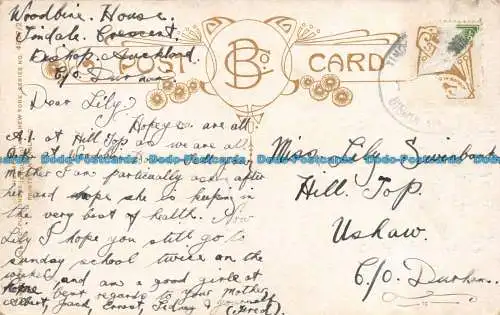 Woodbine House.
Tindale Crescent,
Bishop Auckland,
C/o Durham.
POST CARD
Dear Lily,
Hope you are all
A.1. at Hill Top as we are all
Mother I am particularly asks after
her and hope she is keeping in
the very best of health. Now
Lily I hope you still go to
sunday school twice on the
and am a good girl at
best regards to your Mother
Albert, Jack, Ernest, Sidney & yourself
(Fred)
Miss Lily Swinbank
Hill Top
Ushaw.
C/o. Durham.
Dodo-Antiques.com